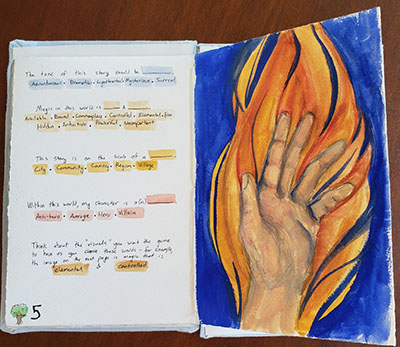 The tone of this story should be
Adventurous • Dramatic • Lighthearted • Mysterious • Surreal
Magic in this world is & 
Available • Bound • Commonplace • Controlled • Elemental •
Hidden • Intuitive • Powerful • Unimportant
This story is on the scale of a
City • Community • County • Region • Village
Within this world, my character is a(n)
Anti-hero • Average • Hero • Villain
Think about the "visuals" you want the game
to have as you choose these words - for example,
the image on the next page is magic that is
Elemental & Controlled
5